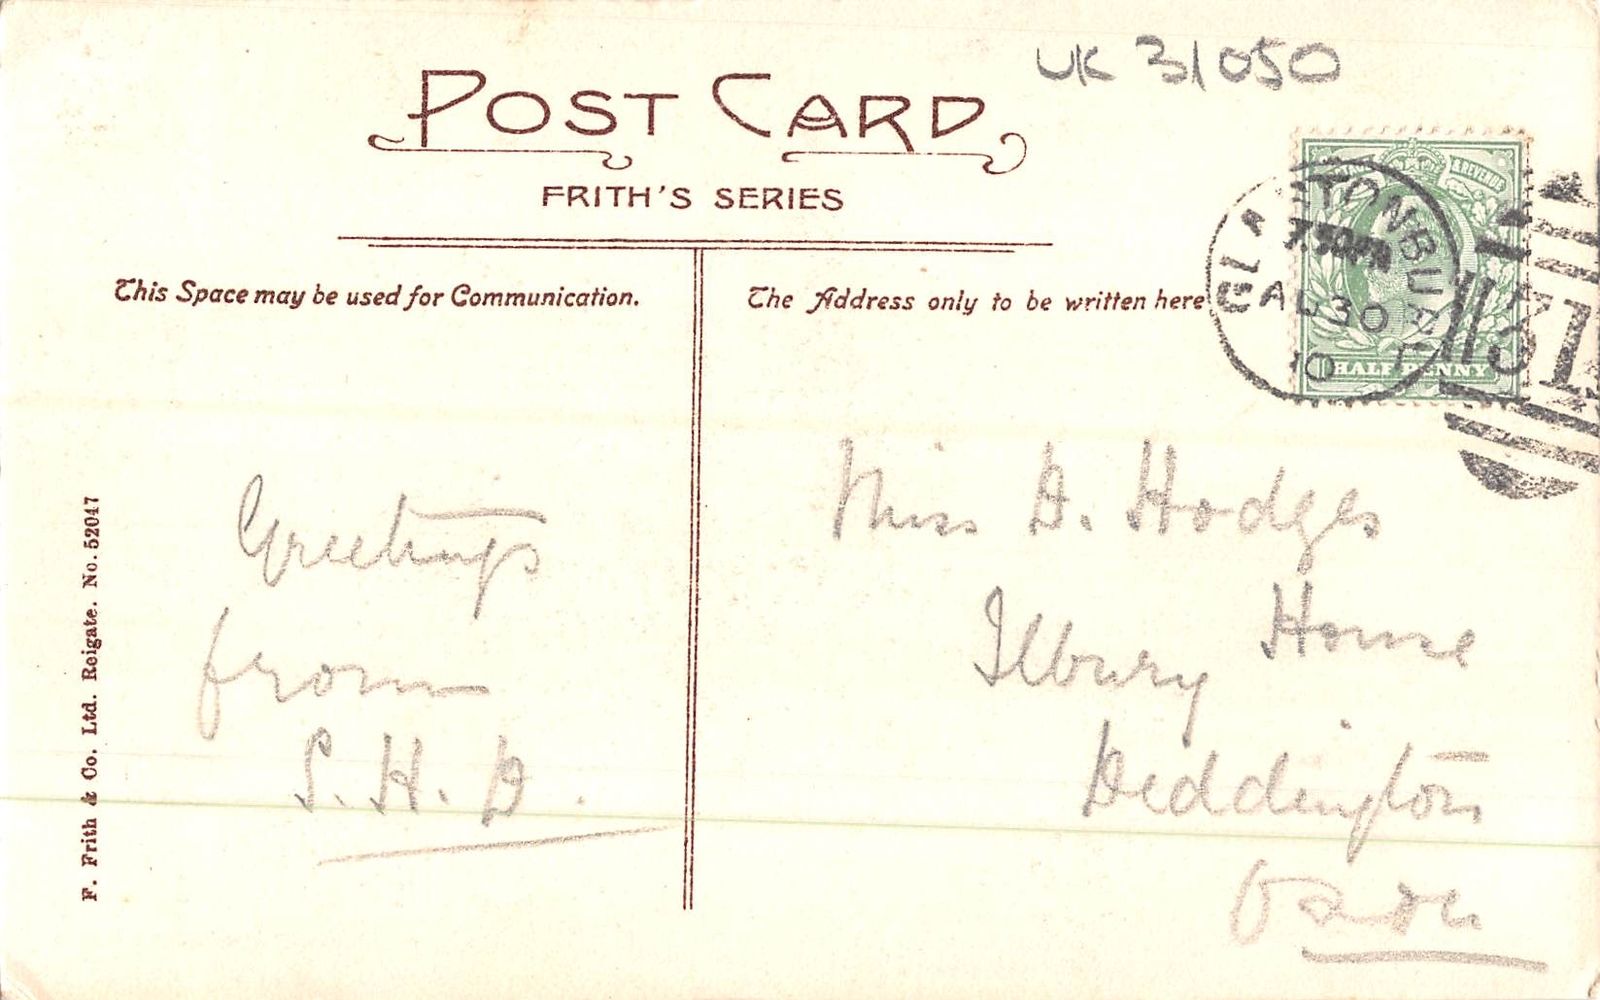 UK 31050
POST CARD
FRITH'S SERIES
This Space may be used for Communication.
The Address only to be written here
& REVENUE
HALF PENNY
GLASTONBURY
7 30 PM
AU 30
10
Greetings
from
S. H. D.
Miss D. Hodges
Ilbury House
Deddington
Oxon
F. Frith & Co. Ltd. Reigate. No. 52047